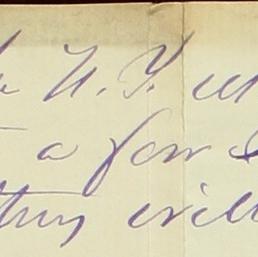 N. Y.
a few
thing will